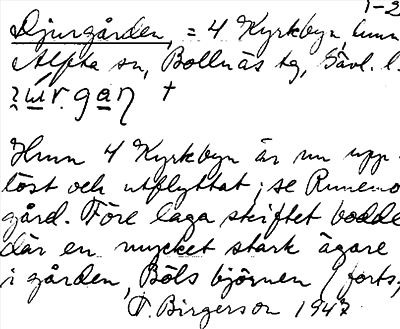 1-2
Djurgården, = 4 Kyrkbyn, hmn
Alfta sn, Bollnäs tg, Gävl. l.
Hmn 4 Kyrkbyn är nu upp-
löst och utflyttat; se Runemo
gård. Före laga skriftet bodde
där en mycket stark ägare
i gården, Böls björnen (forts.
F. Birgerson 1947